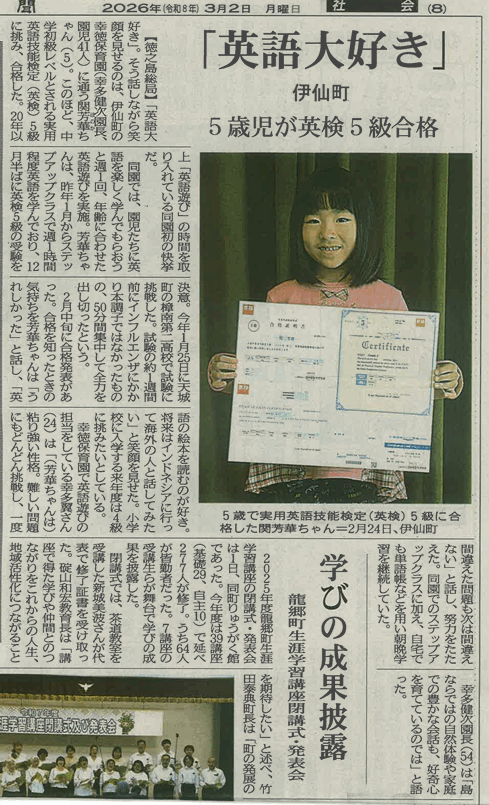 聞
2026年(令和8年) 3月2日 月曜日
社会
(8)
「英語大好き」
伊仙町
5歳児が英検5級合格
【徳之島総局】「英語大
好き」。そう話しながら笑
顔を見せるのは、伊仙町の
幸徳保育園(幸多健次園長、
園児41人)に通う関芳華ち
ゃん(5)。このほど、中
学初級レベルとされる実用
英語技能検定(英検)5級
に挑み、合格した。20年以
上「英語遊び」の時間を取
り入れている同園初の快挙
だ。
同園では、園児たちに英
語を楽しく学んでもらおう
と週1回、年齢に合わせた
英語遊びを実施。芳華ちゃ
んは、昨年1月からステッ
プアップクラスで週1時間
程度英語を学んでおり、12
月半ばに英検5級の受験を
決意。今年1月25日に天城
町の樟南第二高校で試験に
挑戦した。試験の約1週間
前にインフルエンザにかか
り本調子ではなかったもの
の、50分間集中して全力を
出し切ったという。
2月中旬に合格発表があ
った。合格を知ったときの
気持ちを芳華ちゃんは「う
れしかった」と話し、「英
語の絵本を読むのが好き。
将来はインドネシアに行っ
て海外の人と話してみた
い」と笑顔を見せた。小学
校に入学する来年度は4級
に挑みたいとしている。
幸徳保育園で英語遊びの
担当をしている幸多翼さん
(24)は「(芳華ちゃんは)
粘り強い性格。難しい問題
にもどんどん挑戦し、一度
間違えた問題も次は間違え
ない」と話し、努力をたた
えた。同園でのステップア
ップクラスに加え、自宅で
も単語帳などを用い朝晩学
習を継続していた。
幸多健次園長(54)は「島
ならではの自然体験や家庭
での豊かな会話も、好奇心
を育てているのでは」と語
った。
Certificate
5歳で実用英語技能検定(英検)5級に合
格した関芳華ちゃん=2月24日、伊仙町
学びの成果披露
龍郷町生涯学習講座閉講式・発表会
2025年度龍郷町生涯
学習講座の閉講式・発表会
は1日、同町りゅうがく館
であった。今年度は39講座
(基礎29、自主10)で延べ
277人が修了。うち64人
が皆勤者だった。7講座の
受講生らが舞台で学びの成
果を披露した。
閉講式では、茶道教室を
受講した新城美波さんが代
表で修了証書を受け取っ
た。碇山和宏教育長は「講
座で得た学びや仲間とのつ
ながりをこれからの人生、
地域活性化につなげること
を期待したい」と述べ、竹
田泰典町長は「町の発展の
生涯学習講座閉講式及び発表会